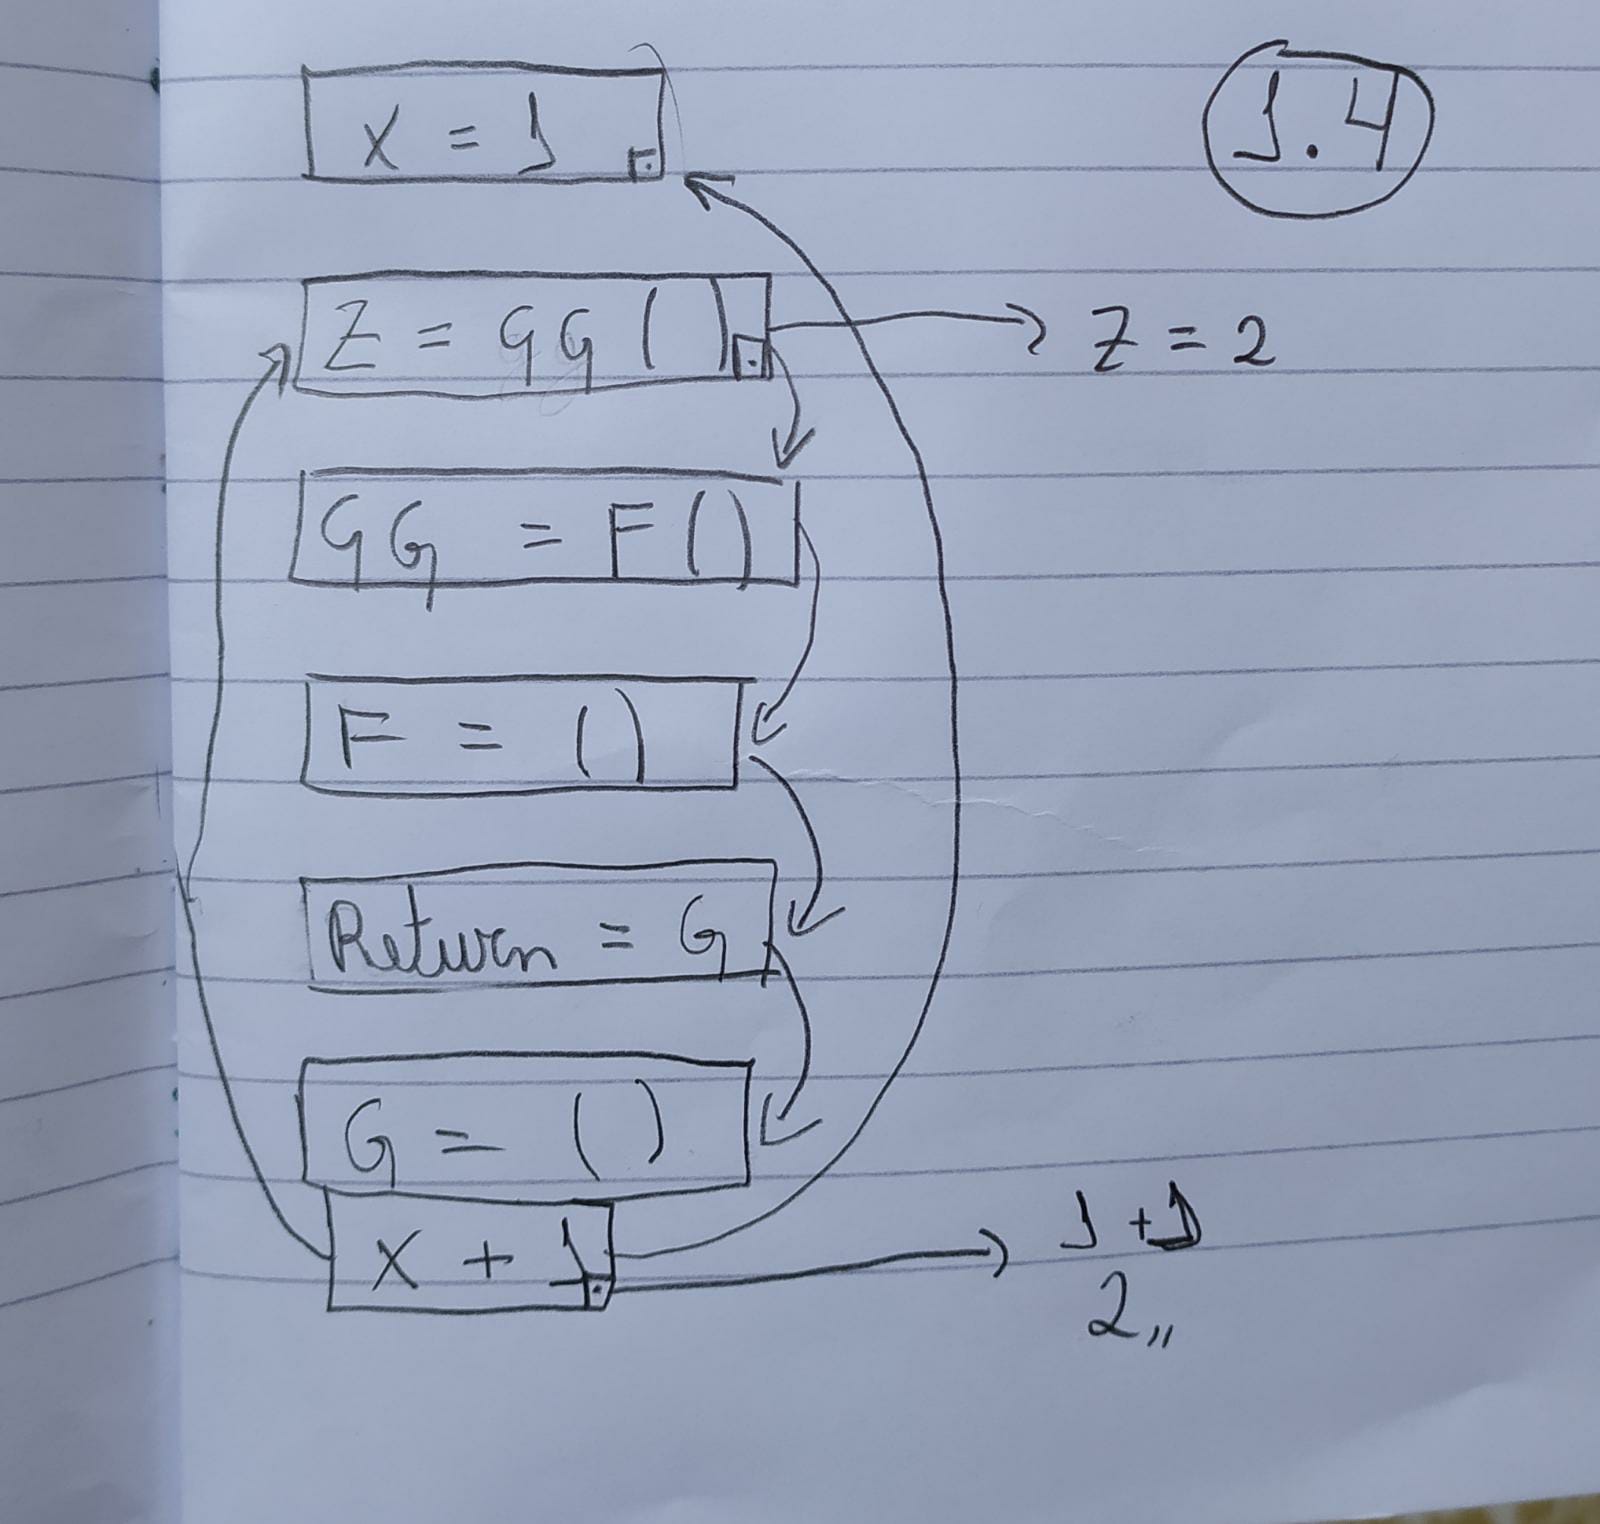 X = 1
1.4
Z = GG ()
Z = 2
GG = F ()
F = ()
Return = G
G = ()
X + 1
1 + 1
2,,